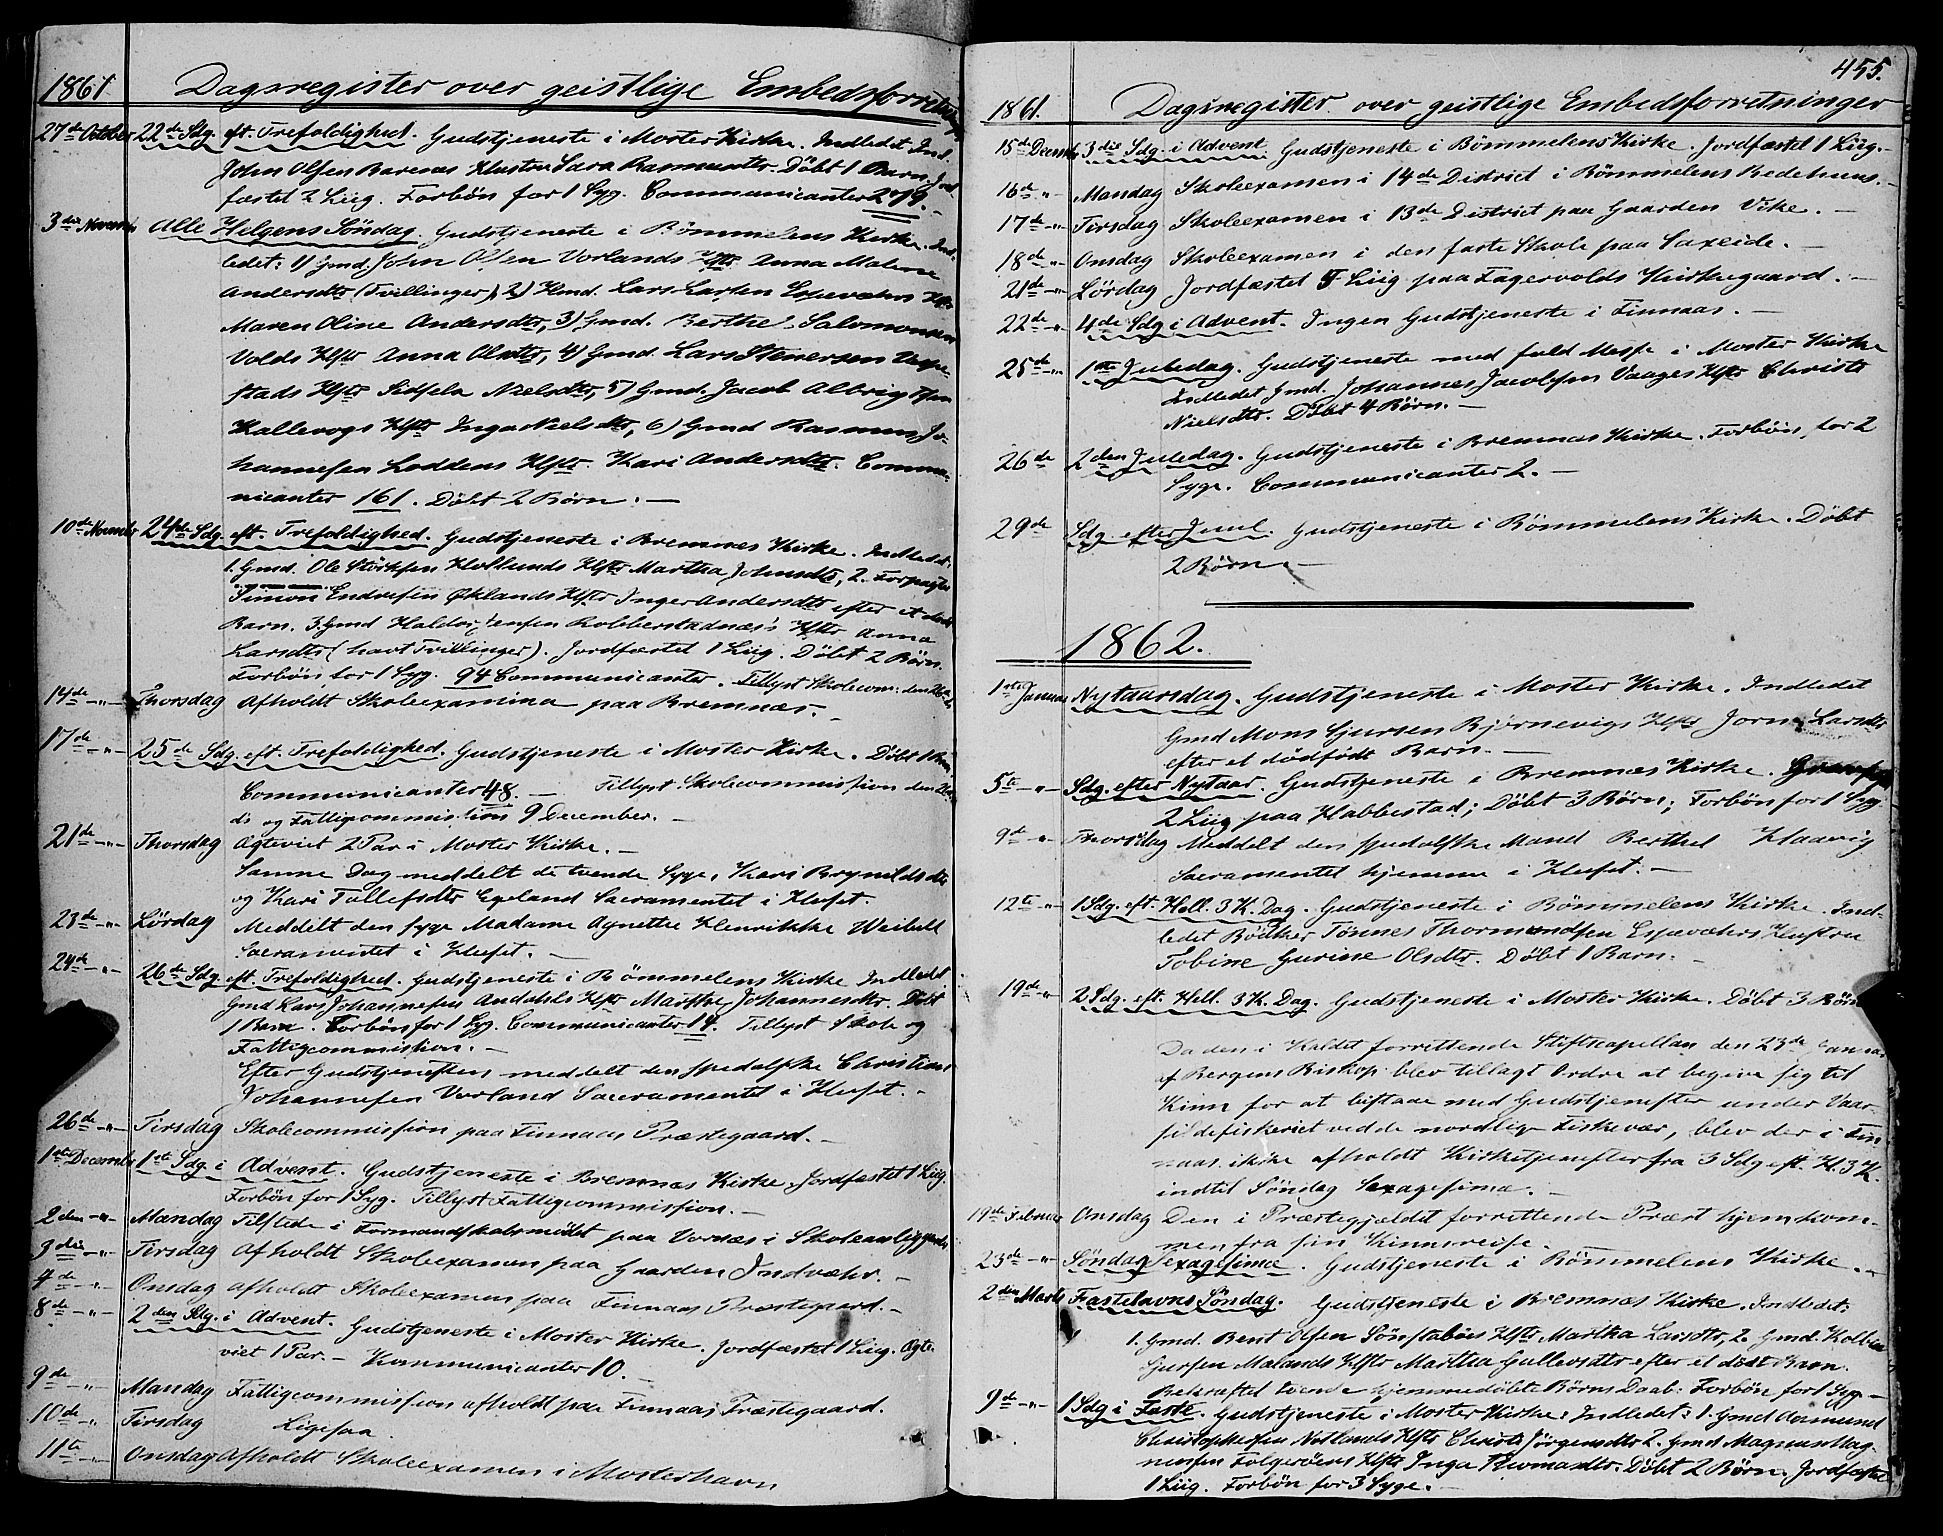 1861 Dagsregister over geistlige Embedsforretninger
27de October 22de Sdg. eft. Trefoldighed. Gudstjeneste i Moster Kirke. Indledet Ind.
John Olsen Hustru Sara Rasmusdtr. Døbt 1 Barn. Jord-
fæstet 2 Liig. Forbøn for 1 Syg. Communicanter 279.
3die November Alle Helgens Søndag. Gudstjeneste i Bømmelens Kirke. Ind-
ledet: 1) Gmd. John Olsen Vorlands Hstr Anna Malene
Andersdtr (Tvillinger), 2) Hmd. Lars Larsen Espeværs Hstr
Maren Oline Andersdtr, 3) Gmd. Berthel Salomonsen
Volds Hstr Anna Olsdtr, 4) Gmd. Lars Stenersen Vespe-
stads Hstr Sidsela Nielsdtr, 5) Gmd. Jacob Albrigtsen
Kallevogs Hstr Inga Nielsdtr, 6) Gmd Rasmus Jo-
hannesen Loddens Hstr. Kari Andersdtr. Commu-
nicanter 161. Døbt 2 Børn. —
10de November 24de Sdg. eft. Trefoldighed. Gudstjeneste i Bremnes Kirke. Indledet:
1. Gmd. Ole Størksen Hollunds Hstr Martha Johnsdtr, 2. Forpagter
Simon Endresen Øklands Hstr Inger Andersdtr efter et dødt
Barn. 3. Gmd Haldor Jensen Robberstadnæs's Hstr Anna
Larsdtr (havt Tvillinger). Jordfæstet 1 Liig. Døbt 2 Børn.
Forbøn for 1 Syg. 94 Communicanter. Tillyst Skolecom: den
14de — " — Thorsdag Afholdt Skoleexamina paa Bremnæs. —
17de — " — 25de Sdg. eft. Trefoldighed. Gudstjeneste i Moster Kirke. Døbt 1 Barn.
Communicanter 48. — Tillyst Skolecommission den
de og Fattigcommission 9 December. —
21de — " — Thorsdag Ægteviet 2 Par i Moster Kirke. —
Samme Dag meddelt de tvende Syge, Kari Brynildsdtr
og Kari Tollefsdtr Egeland Sacramentet i Huset.
23de — " — Lørdag Meddelt den syge Madame Agnette Henrikke Weibell
Sacramentet i Huset. —
24de — " — 26de Sdg. eft. Trefoldighed. Gudstjeneste i Bømmelens Kirke Indledet
Gmd Lars Johannesen Andahls Hstr Marthe Johannesdtr. Døbt
1 Barn. Forbøn for 1 Syg. Communicanter 14. Tillyst Skole og
Fattigcommission. —
Efter Gudstjenesten meddelt den spedalske Christian
Johannesen Vorland Sacramentet i Huset. —
26de — " — Tirsdag Skolecommission paa Finnaas Præstegaard. —
1ste December 1ste Sdg. i Advent. Gudstjeneste i Bremnæs Kirke. Jordfæstet 1 Liig.
Forbøn for 1 Syg. Tillyst Fattigcommission. —
2den — " — Mandag Tilstede i Formandskabsmødet paa Vornæs i Skoleanliggender
3die — " — Tirsdag Afholdt Skoleexamen paa Gaarden Indvær. —
4de — " — Onsdag afholdt Skoleexamen paa Finnaas Præstegaard. —
8de — " — 2den Sdg. i Advent. Gudstjeneste i Moster Kirke. Jordfæstet 1 Liig. Ægte-
viet 1 Par. — Kommunicanter 10. —
9de — " — Mandag Fattigcommission afholdt paa Finnaas Præstegaard.
10de — " — Tirsdag Ligesaa.
11te — " — Onsdag Afholdt Skoleexamen i Mosterhavn
455.
1861. Dagsregister over geistlige Embedsforretninger
15de Decembr 3die Sdg. i Advent. Gudstjeneste i Bømmelens Kirke. Jordfæstet 1 Liig. —
16de " Mandag Skoleexamen i 14de District i Bømmelens Bedehuus. —
17de — " — Tirsdag Skoleexamen i 13de District paa Gaarden Vike. —
18de — " — Onsdag Skoleexamen i den faste Skole paa Saxeide. —
21de — " — Lørdag Jordfæstet 5 Liig paa Fagervolds Kirkegaard. —
22de — " — 4de Sdg i Advent. Ingen Gudstjeneste i Finnaas. —
25de — " — 1ste Juledag. Gudstjeneste med fuld Messe i Moster Kirke
Indledet Gmd. Johannes Jacobsen Vaages Hstr Christi
Nielsdtr. Døbt 4 Børn. —
26de 2den Juledag. Gudstjeneste i Bremnæs Kirke. Forbøn for 2
Syge. Communicanter 2. —
29de Sdg. efter Juul. Gudstjeneste i Bømmelens Kirke. Døbt
2 Børn. —
1862.
1ste Januar Nytaarsdag. Gudstjeneste i Moster Kirke. Indledet
Gmd Mons Sjursen Bjørnevigs Hstr Jorn Larsdtr
efter et dødfødt Barn. —
5te — " — Sdg. efter Nytaar. Gudstjeneste i Bremnæs Kirke.
2 Liig paa Habbestad; Døbt 3 Børn; Forbøn for 1 Syg.
9de — " Thorsdag Meddelt den spedalske Mand Berthel Haavig
Sacramentet hjemme i Huset. —
12te — " — 1 Sdg. eft. Hell. 3 K. Dag. Gudstjeneste i Bømmelens Kirke. Ind-
ledet Bødker Tønnes Thormundsen Espeværs Hustru
Tobine Gurine Olsdtr. Døbt 1 Barn. —
19de — " 2 Sdg. eft. Hell. 3 K. Dag. Gudstjeneste i Moster Kirke. Døbt 3 Børn
Da den i Kaldet forrettende Stiftscapellan den 23de Januar
af Bergens Biskop blev tillagt Ordre at begive sig til
Kinn for at bistaae med Gudstjenester under Vaar-
sildefiskeriet ved de nordlige Fiskevær, blev der i Fin-
naas ikke afholdt Kirketjenester fra 3 Sdg eft. H. 3 K.
indtil Søndag Sexagesima. —
19de Februar Onsdag Den i Præstegjældet forrettende Præst hjemkom-
men fra sin Kinnsreise.
23de — " — Søndag Sexagesima. Gudstjeneste i Bømmelens Kirke. —
2den Marts Fastelavns Søndag. Gudstjeneste i Bremnæs Kirke. Indledet:
1. Gmd. Bent Olsen Sønstabøes Hstr Martha Larsdtr, 2. Gmd. Kolbein
Sjursen Mælands Hstr Martha Gullevsdtr efter et dødt Barn.
Bekræftet tvende hjemmedøbte Børns Daab. Forbøn for 1 Syg. —
9de — " — 1 Sdg i Faste. Gudstjeneste i Moster Kirke: Indledet: 1. Gmd Aamund
Christophersen Notlands Hstr Christi Jørgensdtr 2. Gmd Magnus Mag-
nussen Folgerøens Hstr Inga Thomasdtr. Døbt 2 Børn. Jordfæstet
1 Liig. Forbøn for 3 Syge. —